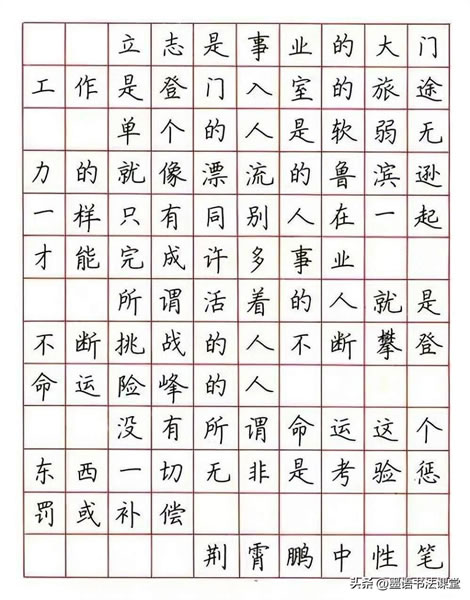 立志是事业的大门
工作是登门入室的旅途
单个的人是软弱无
力的就像漂流的鲁滨逊
一样只有同别人在一起
才能完成许多事业
所谓活着的人就是
不断挑战的人不断攀登
命运险峰的人
没有所谓命运这个
东西一切无非是考验惩
罚或补偿
荆霄鹏中性笔
头条@墨语书法课堂